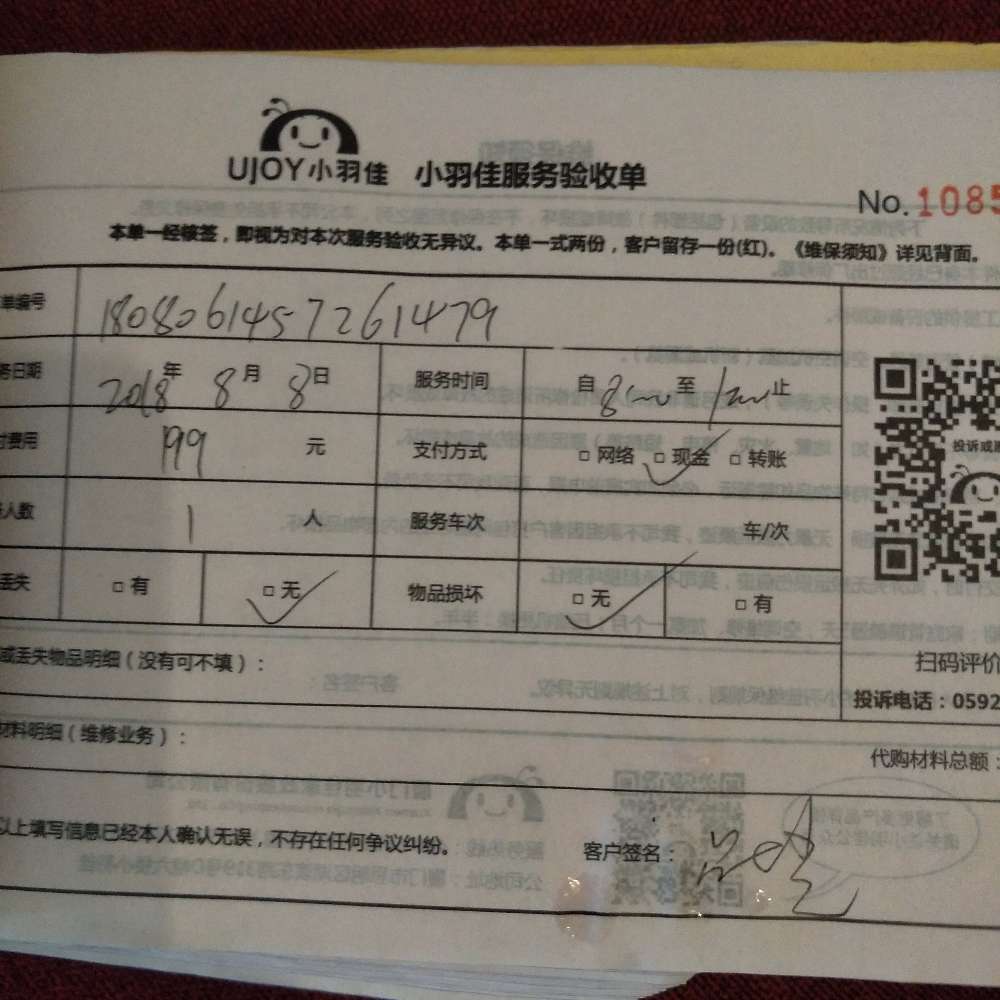 UJOY小羽佳 小羽佳服务验收单
No.1085
本单一经核签，即视为对本次服务验收无异议。本单一式两份，客户留存一份(红)。《维保须知》详见背面。
单编号 1808061457261479
务日期 2018年 8月 8日 服务时间 自 8:00 至 12:00 止
付费用 199 元 支付方式 □网络 □现金 □转账
人数 1 人 服务车次 车/次
丢失 □有 □无 物品损坏 □无 □有
投诉或
或丢失物品明细（没有可不填）：
扫码评价
投诉电话：0592
材料明细（维修业务）：
代购材料总额：
以上填写信息已经本人确认无误，不存在任何争议纠纷。 客户签名：